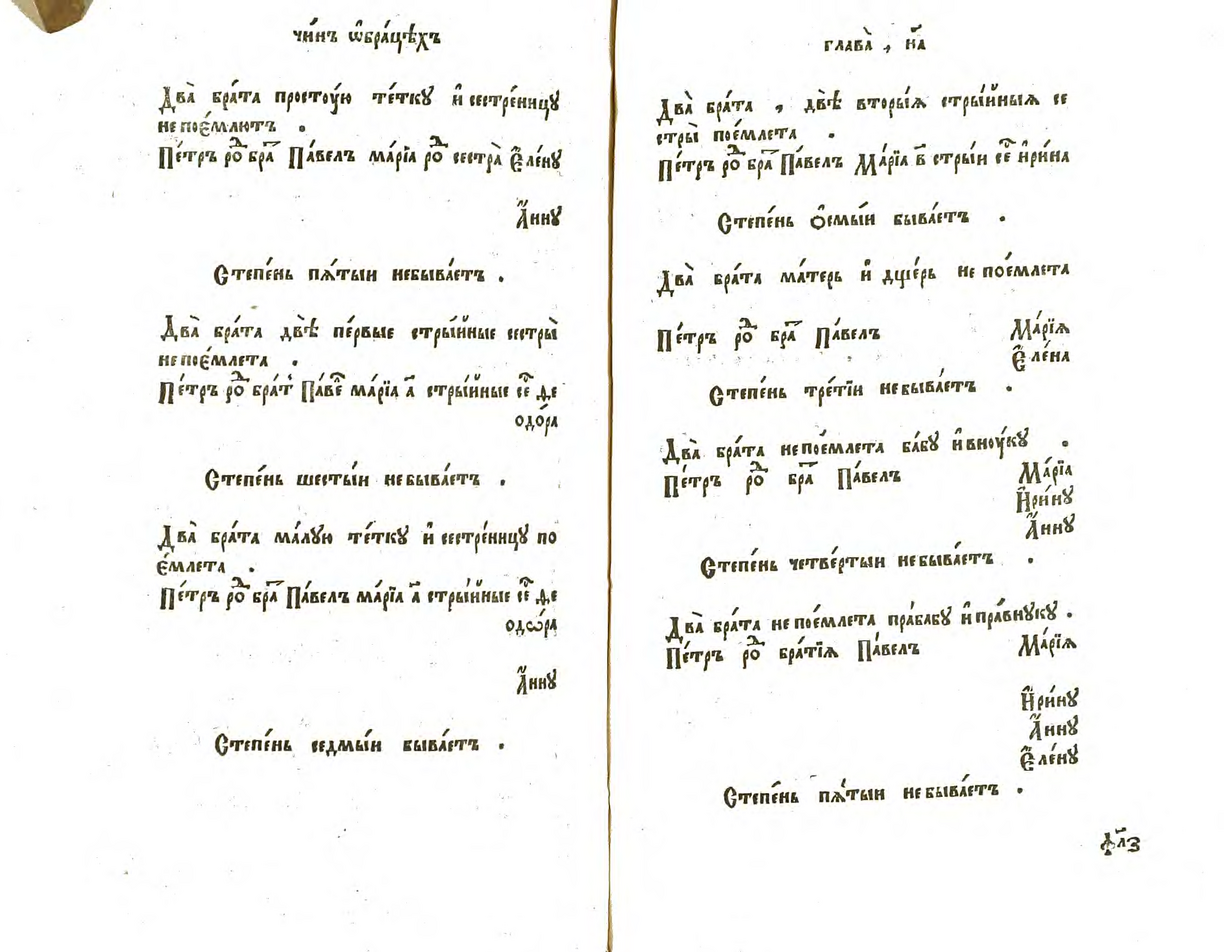 чи́нъ ѡ҆бра́цѣхъ
Два̀ бра́та просто́ую те́тку и҆ сестре́ницу
непое́млютъ .
Пе́тръ роⷣ браⷮ Па́велъ ма́рїа роⷣ сестра̀ Е҆ле́ну
А҆́нну
Степе́нь пѧ́тыи небыва́етъ .
Два̀ бра́та двѣ̀ пе́рвые стры́йные сестры̀
непое́млета .
Пе́тръ роⷣ бра́т Па́веⷧ ма́рїа а҃ стры́йные сеⷭ ѳе
одо́ра
Степе́нь шесты́и небыва́етъ .
Два̀ бра́та ма́лую те́тку и҆ сестре́ницу по
е́млета .
Пе́тръ роⷣ браⷮ Па́велъ ма́рїа а҃ стры́йные сеⷭ ѳе
одѡ́ра
А҆́нну
Степе́нь седмы́и быва́етъ .
глава̀ , н҃а
Два̀ бра́та , двѣ̀ вторы́ѧ стры́йныѧ се
стры̀ пое́млета .
Пе́тръ роⷣ браⷮ Па́велъ Ма́рїа в҃ стры́и сеⷭ и҆ри́на
Степе́нь ѻ҆смы́и быва́етъ .
Два̀ бра́та ма́терь и҆ дще́рь не пое́млета
Пе́тръ роⷣ браⷮ Па́велъ Ма́рїѧ
Е҆ле́на
Степе́нь тре́тїи небыва́етъ .
Два̀ бра́та непое́млета ба́бу и҆ вно́уку .
Пе́тръ роⷣ браⷮ Па́велъ Ма́рїа
И҆ри́ну
А҆́нну
Степе́нь четве́ртыи небыва́етъ .
Два̀ бра́та непое́млета пра́бабу и҆ пра́внуку .
Пе́тръ роⷣ бра́тїѧ Па́велъ Ма́рїѧ
И҆ри́ну
А҆́нну
Е҆ле́ну
Степе́нь пѧ́тыи небыва́етъ .
ф҃лз